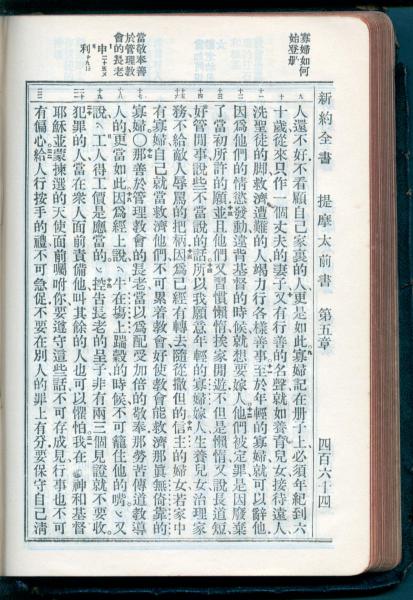 新約全書 提摩太前書 第五章 四百六十四
寡婦如何
始登册
人還不好不看顧自己家裏的人更是如此寡婦記在册子上必須年紀到六
十歲從來只作一個丈夫的妻子又有行善的名聲就如養育兒女接待遠人
洗聖徒的脚救濟遭難的人竭力行各樣善事至於年輕的寡婦就可以辭他
因爲他們的情慾發動違背基督的時候就想要嫁人他們被定罪是因廢棄
了當初所許的願並且他們又習慣懶惰挨家閒遊不但是懶惰又說長道短
好管閒事說些不當說的話所以我願意年輕的寡婦嫁人生養兒女治理家
務不給敵人辱罵的把柄因爲已經有轉去隨從撒但的信主的婦女若家中
有寡婦自己就當救濟他們不可累着教會好使教會能救濟那眞無倚靠的
當敬奉善
於管理教
會的長老
申
利
寡婦○那善於管理教會的長老當以爲配受加倍的敬奉那勞苦傳道教導
人的更當如此因爲經上說牛在塲上踹穀的時候不可籠住他的嘴又
說工人得工價是應當的控告長老的呈子非有兩三個見證就不要收
犯罪的人當在衆人面前責備他叫其餘的人也可以懼怕我在 神和基督
耶穌並蒙揀選的天使面前囑咐你要遵守這些話不可存成見行事也不可
有偏心給人行按手的禮不可急促不要在別人的罪上有分要保守自己清